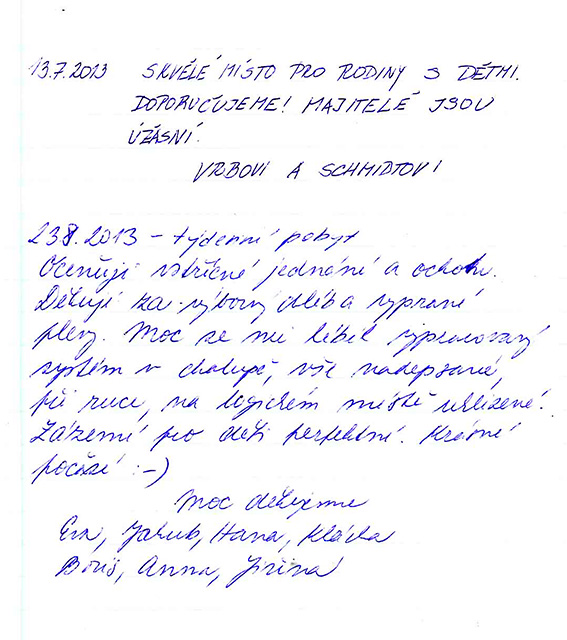 13.7.2013 SKVĚLÉ MÍSTO PRO RODINY S DĚTMI.
DOPORUČUJEME! MAJITELÉ JSOU
ÚŽASNÍ.
VRBOVI A SCHMIDTOVI
23.8.2013 – týdenní pobyt
Oceňuji vstřícné jednání a ochotu.
Děkuji za výborný chléb a vyprané
pleny. Moc se mi líbil vypracovaný
systém v chalupě, vše nadepsané,
při ruce, na logickém místě uklizené.
Zázemí pro děti perfektní. Krásné
počasí :-)
Moc děkujeme
Eva, Jakub, Hana, Klárka
Boris, Anna, Jiřina